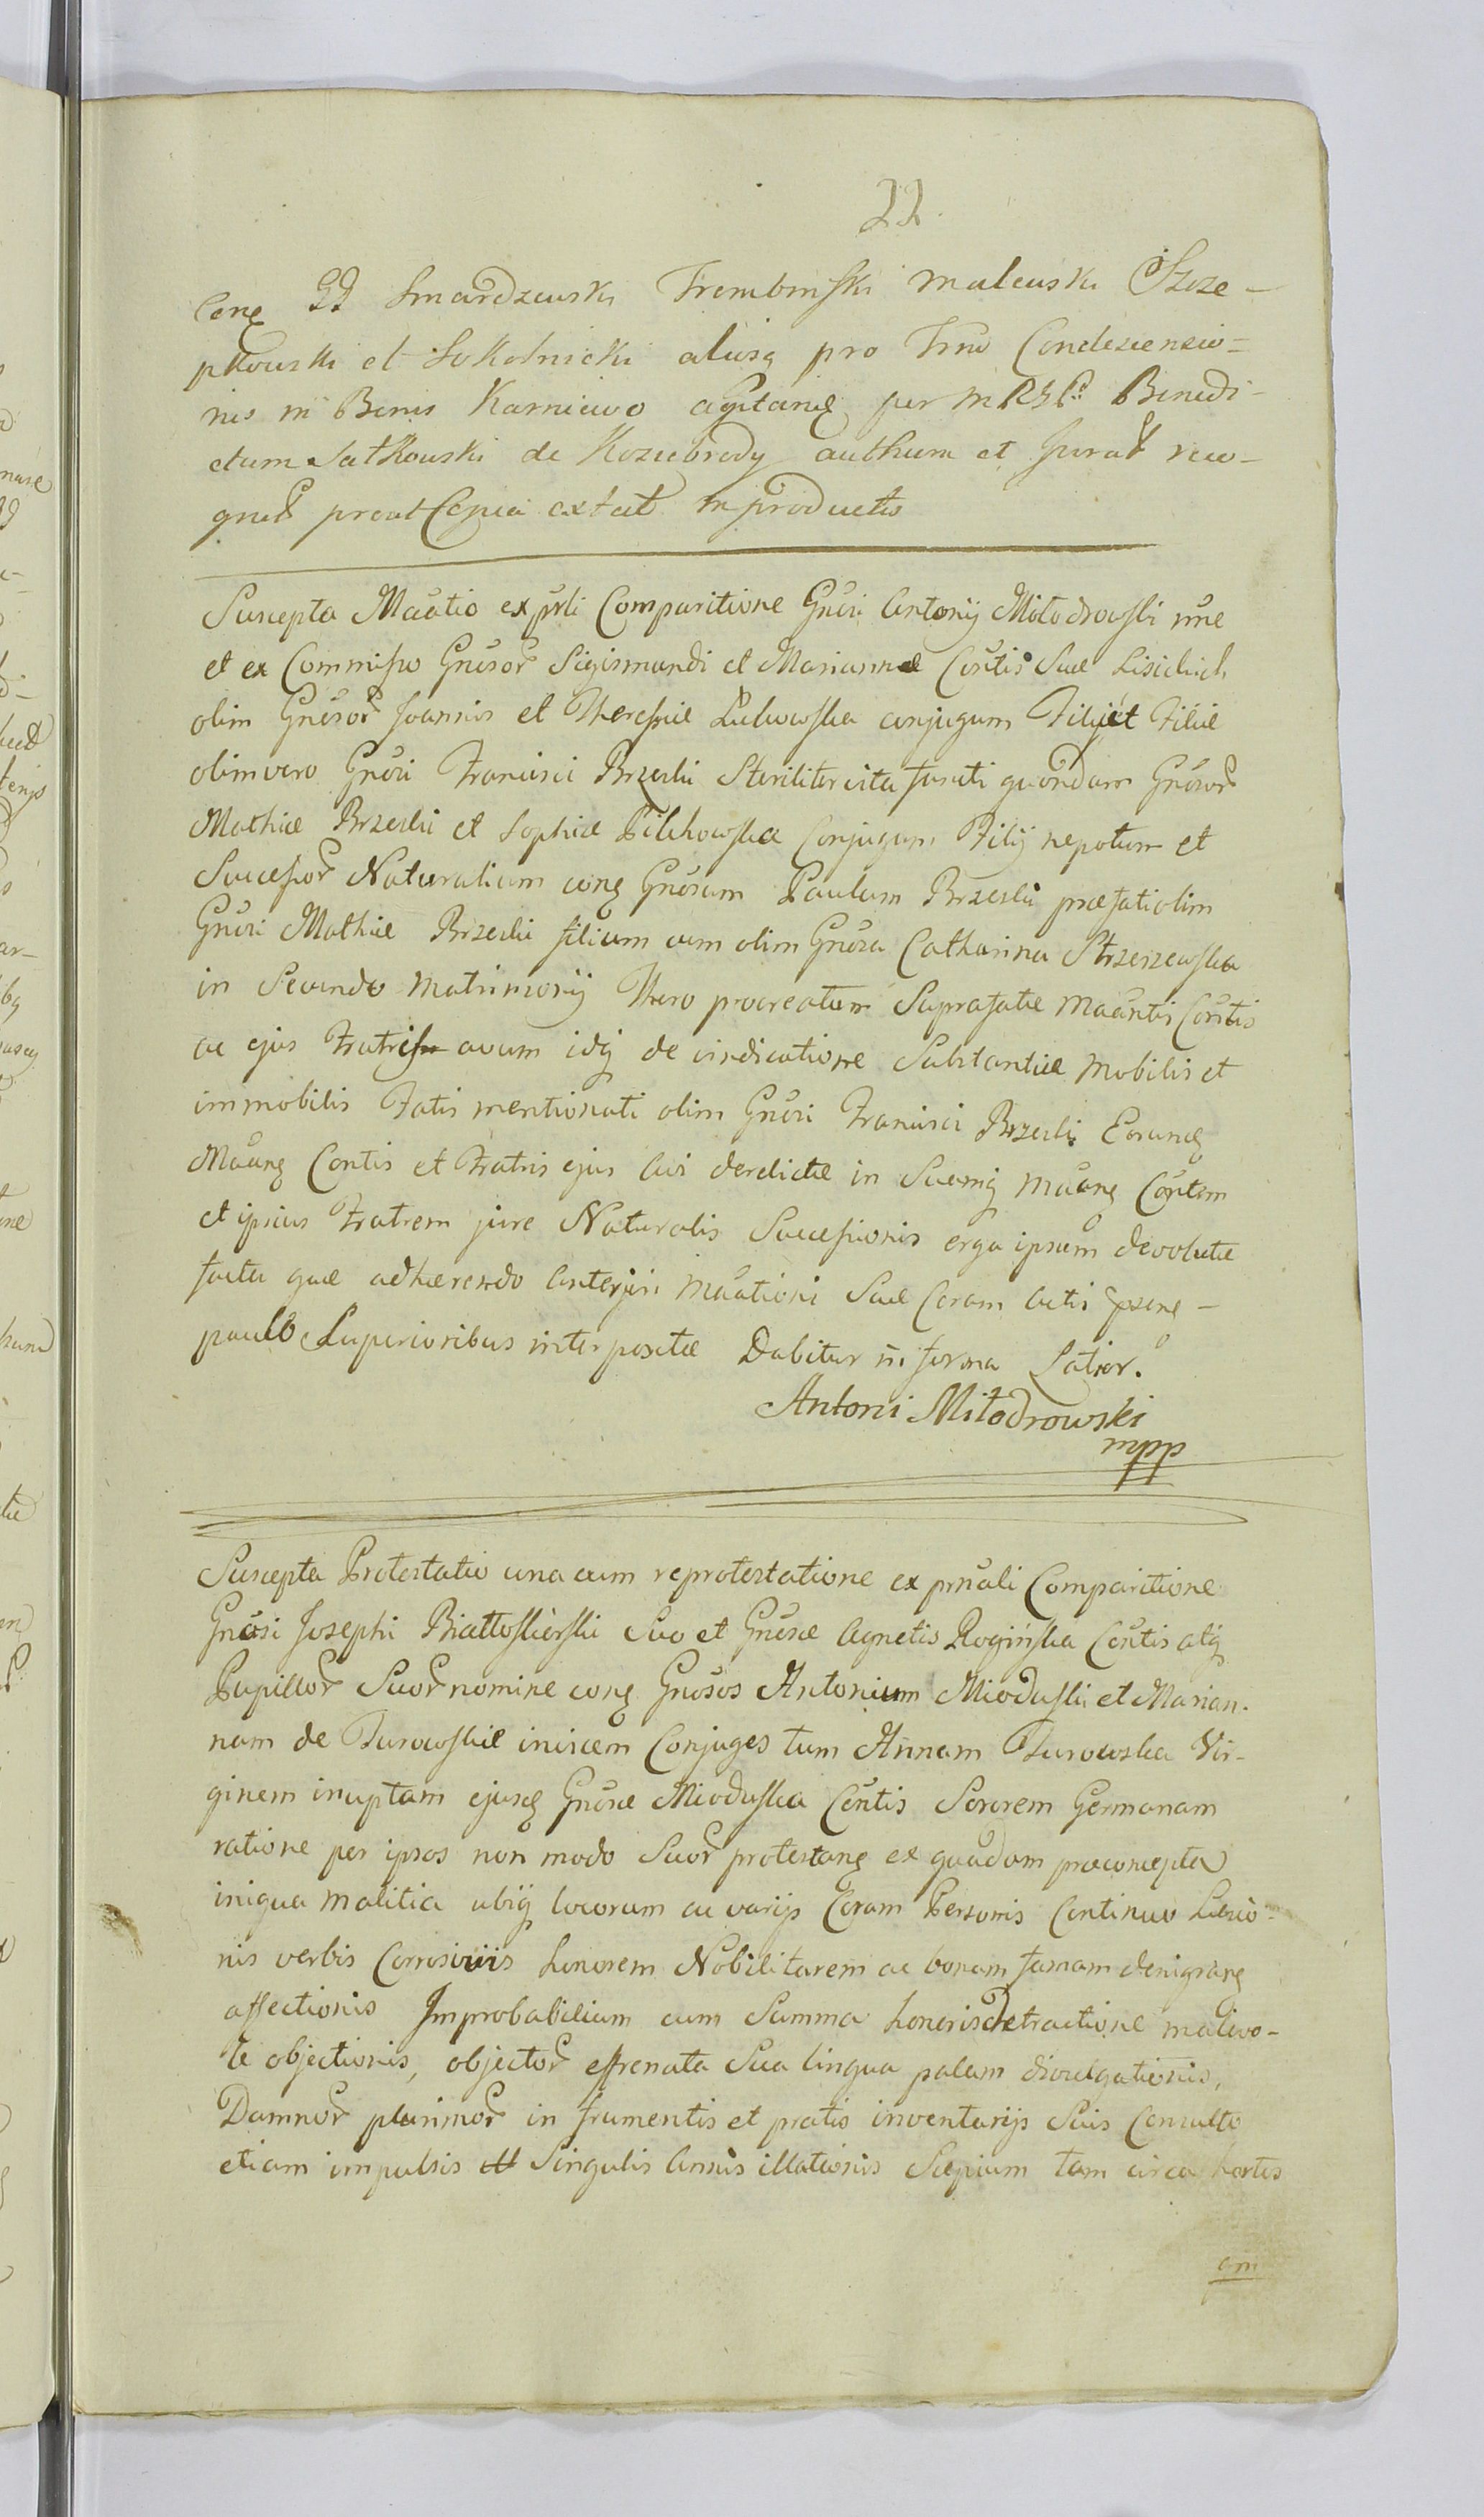 22.
Conq GG Smardzewski Trembinski Malewski Szcze-
pkowski et Sokolnicki aliosq pro Trno Condescensio-
nis in Bonis Karniewo agitanq per MRGP. Benedi-
ctum Sutkowski de Koziebrody authum et jurat reco-
gnit prout Copia extat in productis
Suscepta Maatio ex prsli Comparitione Gnosi Antonij Miłodrowski nne
et ex Commisso Gnosor Sigismundi et Mariannæ Contis Suæ Lisickich
olim Gnosor Joannis et Theresiæ Lulewska conjugum Filij et Filiæ
olim vero Gnosi Francisci Brzeski Steriliter vita functi quondam Gnosor
Mathiæ Brzeski et Sophiæ Pilchowska Conjugum Filij nepotum et
Successor Naturalium conq Gnosum Paulum Brzeski præfati olim
Gnosi Mathiæ Brzeski filium cum olim Gnosa Catharina Strzeszewska
in Secundo Matrimonij Thoro procreatum Suprafatæ Maantis Contis
ac ejus Fratris avum idq de vindicatione Substantiæ mobilis et
immobilis Fatis mentionati olim Gnosi Francisci Brzeski Eorundq
Maanq Contis et Fratris ejus Avi derelictæ in Suamq maanq Contem
et ipsius Fratrem jure Naturalis Successionis erga ipsum devolutæ
facta quæ adhærendo Anteriori Maationi Suæ Coram Actis psenq-
paulo Superioribus interpositæ Dabitur in forma Latior.
Antoni Miłodrowski
mpp
Suscepta Protestatio una cum reprotestatione ex prnali Comparitione
Gnosi Josephi Białłoskórski Suo et Gnosæ Agnetis Rogińska Contis atq
Pupillor Suor nomine conq Gnosos Antonium Mioduski et Marian-
nam de Turowskie invicem Conjuges tum Annam Turowska Vir-
ginem inuptam ejusq Gnosæ Mioduska Contis Sororem Germanam
ratione per ipsos non modo Suor protestanq ex quadam præconcepta
iniqua malitia ubiq locorum ac varijs Coram Personis Continuo Læsio-
nis verbis Corrosivis honorem Nobilitarem ac bonam famam denigranq
affectionis Improbabilium cum Summa honoris detractione malivo-
le objectionis, objector effrenata Sua lingua palam divulgationis,
Damnor plurimor in frumentis et pratis inventarijs Suis Consulto
etiam impulsis Singulis Annis illationis Sæpium tam circa hortos
am